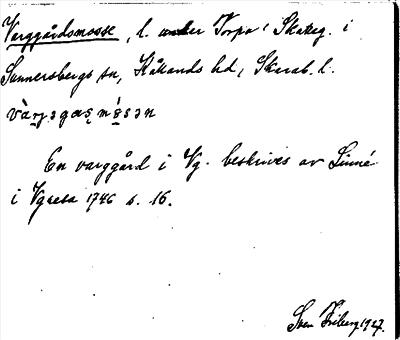 Varggårdsmosse, l. under Torpa i Skateg. i
Sunnersbergs sn, Kållands hd, Skarab. l.
En varggård i Vg. beskrives av Linné
i Vgresa 1746 s. 16.
Sven Friberg 1927.